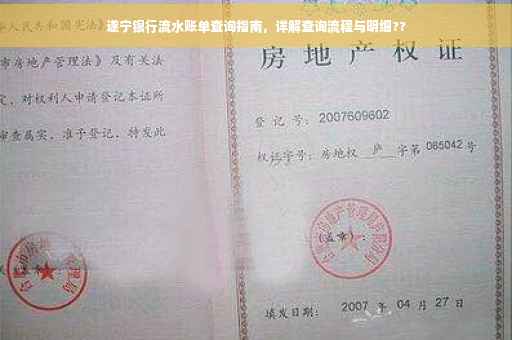 遂宁银行流水账单查询指南，详解查询流程与明细??
华人民共和国宪法》
市房地产管理法》及有关法
定，对权利人申请登记本证所
审查属实，准予登记，特发此
房地产权证
登记号：2007609602
权证字号：房地权 庐 字第 065042 号
(盖章)：
填发日期：2007 年 04 月 27 日